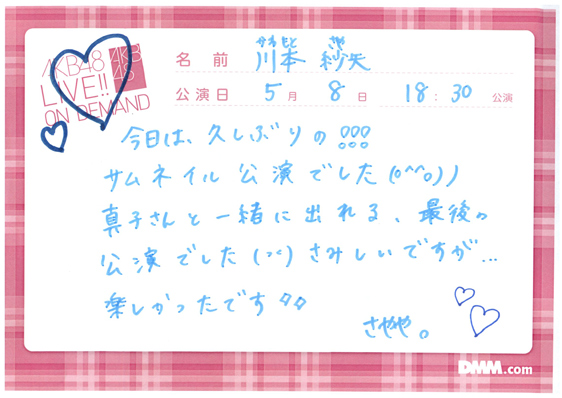 AKB48
LIVE!!
ON DEMAND
AKB
48
名前 川本 紗矢
かわもと さや
公演日 5月 8日 18:30 公演
今日は、久しぶりの!!!
サムネイル公演でした(o^^o))
真子さんと一緒に出れる、最後の
公演でした(><)さみしいですが...
楽しかったです
さやや。
DMM.com